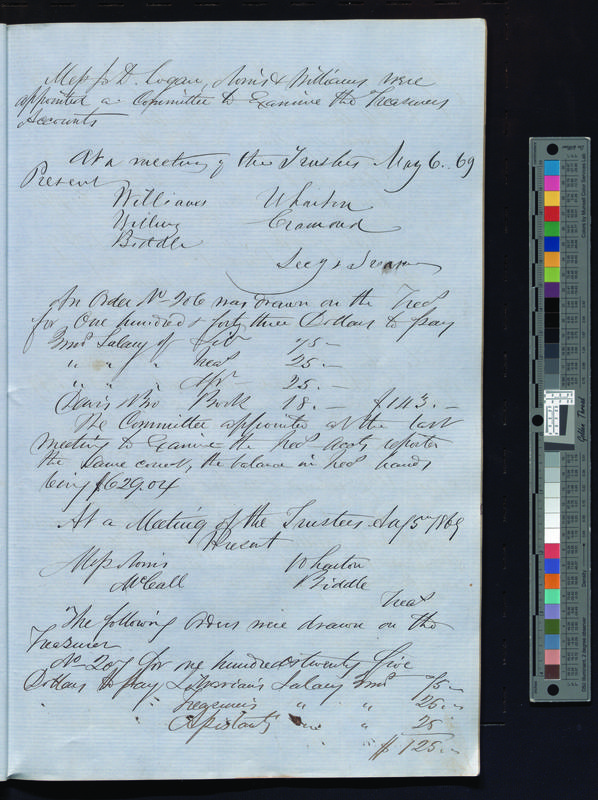 Mess J. D. Logan, Norris & Williams were
appointed a Committee to Examine the Treasurers
Accounts
At a meeting of the Trustees May 6. 69
Present
Williams Wharton
Willing Cramond
Biddle
Secy & Treasurer
An Order No 206 was drawn on the Treas
for One hundred & forty three Dollars to pay
3 mos Salary of Libr 75 —
" " " Treas 25. —
" " " Asst 25. —
Davis & Bro Book 18. — $143. —
The Committee appointed at the last
meeting to Examine the Treas accts reported
the Same correct, the balance in Treas hands
being $629.04
At a Meeting of the Trustees Aug 5th 1869
Present
Mess Norris Wharton
McCall Biddle
Treas
The following Orders were drawn on the
Treasurer
No 207 for one hundred & twenty five
Dollars to pay Librarians Salary 3 mos 75 —
" " Treasurers " " 25 —
" " Assistants " " 25
" " $125. —